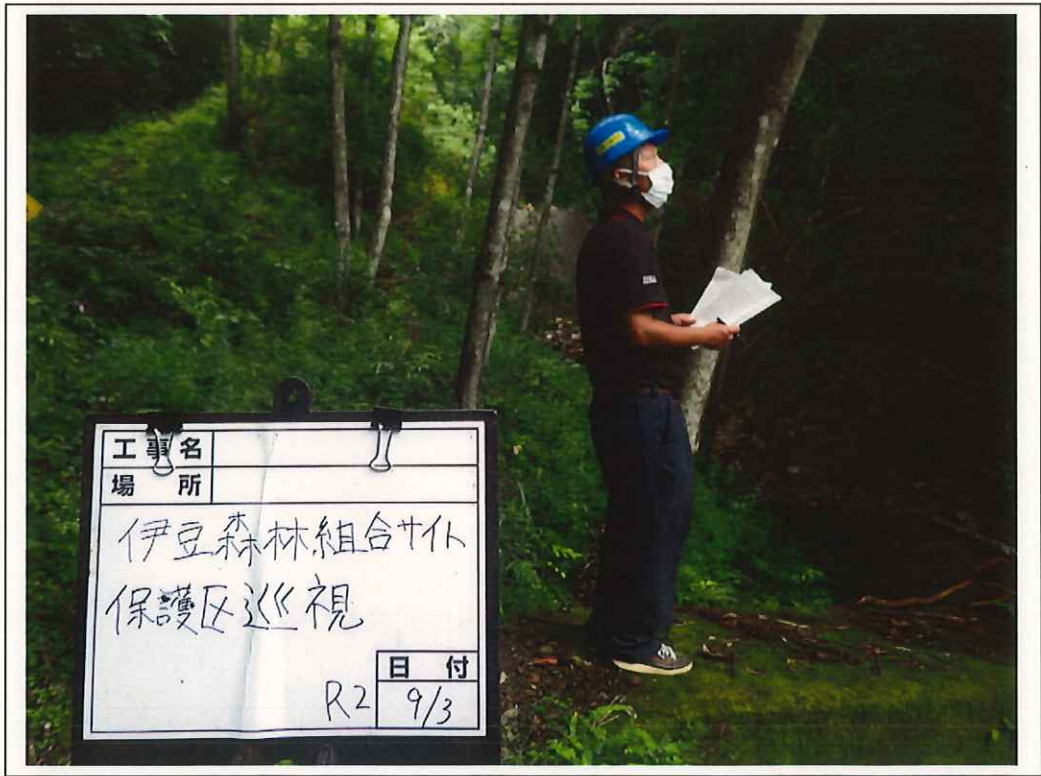 工事名
場所
伊豆森林組合サイト
保護区巡視
日付
R2 9/3